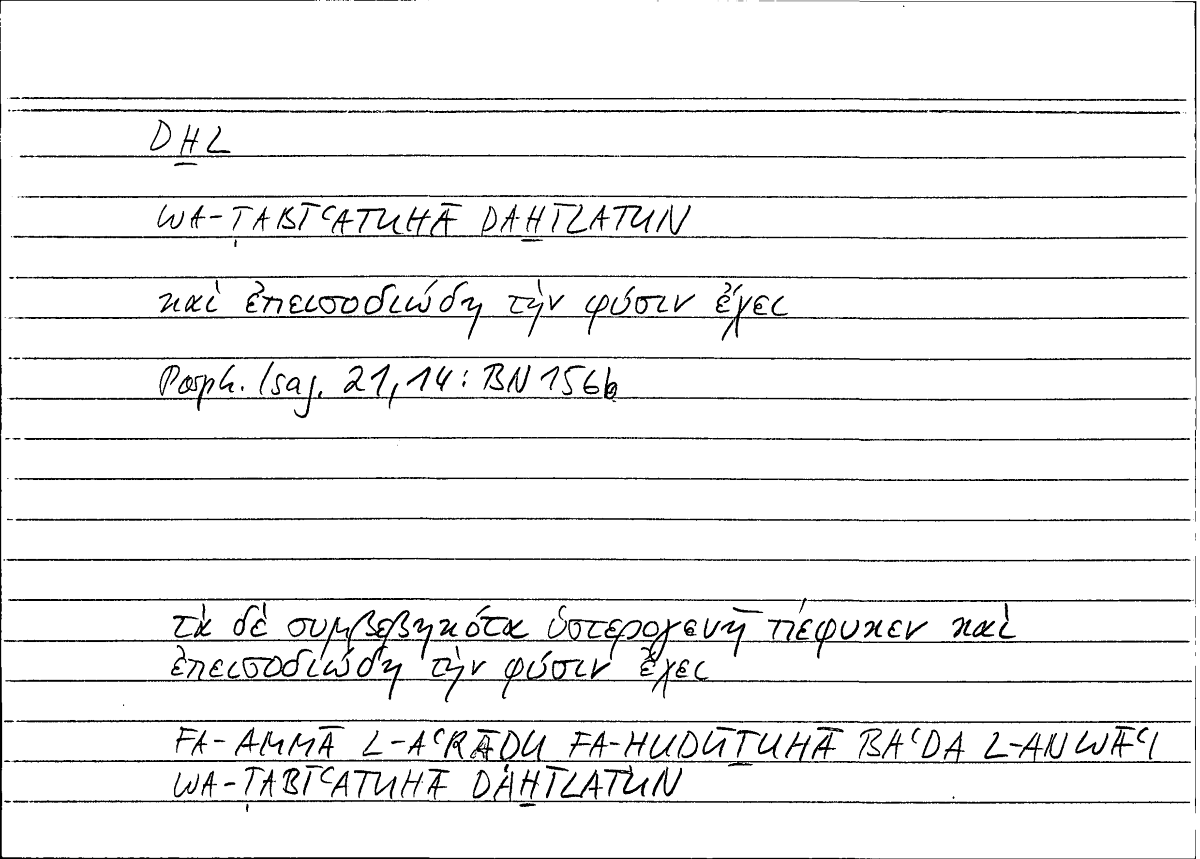 DH̱L
WA-ṬABĪʿATUHĀ DAH̱ĪLATUN
καὶ ἐπεισοδιώδη τὴν φύσιν ἔχει
Porph. Isag. 21,14: BN 156b
τὰ δὲ συμβεβηκότα ὑστερογενῆ πέφυκεν καὶ
ἐπεισοδιώδη τὴν φύσιν ἔχει
FA-AMMĀ L-AʿRĀḌU FA-HUDŪṮUHĀ BAʿDA L-ANWĀʿI
WA-ṬABĪʿATUHĀ DAH̱ĪLATUN